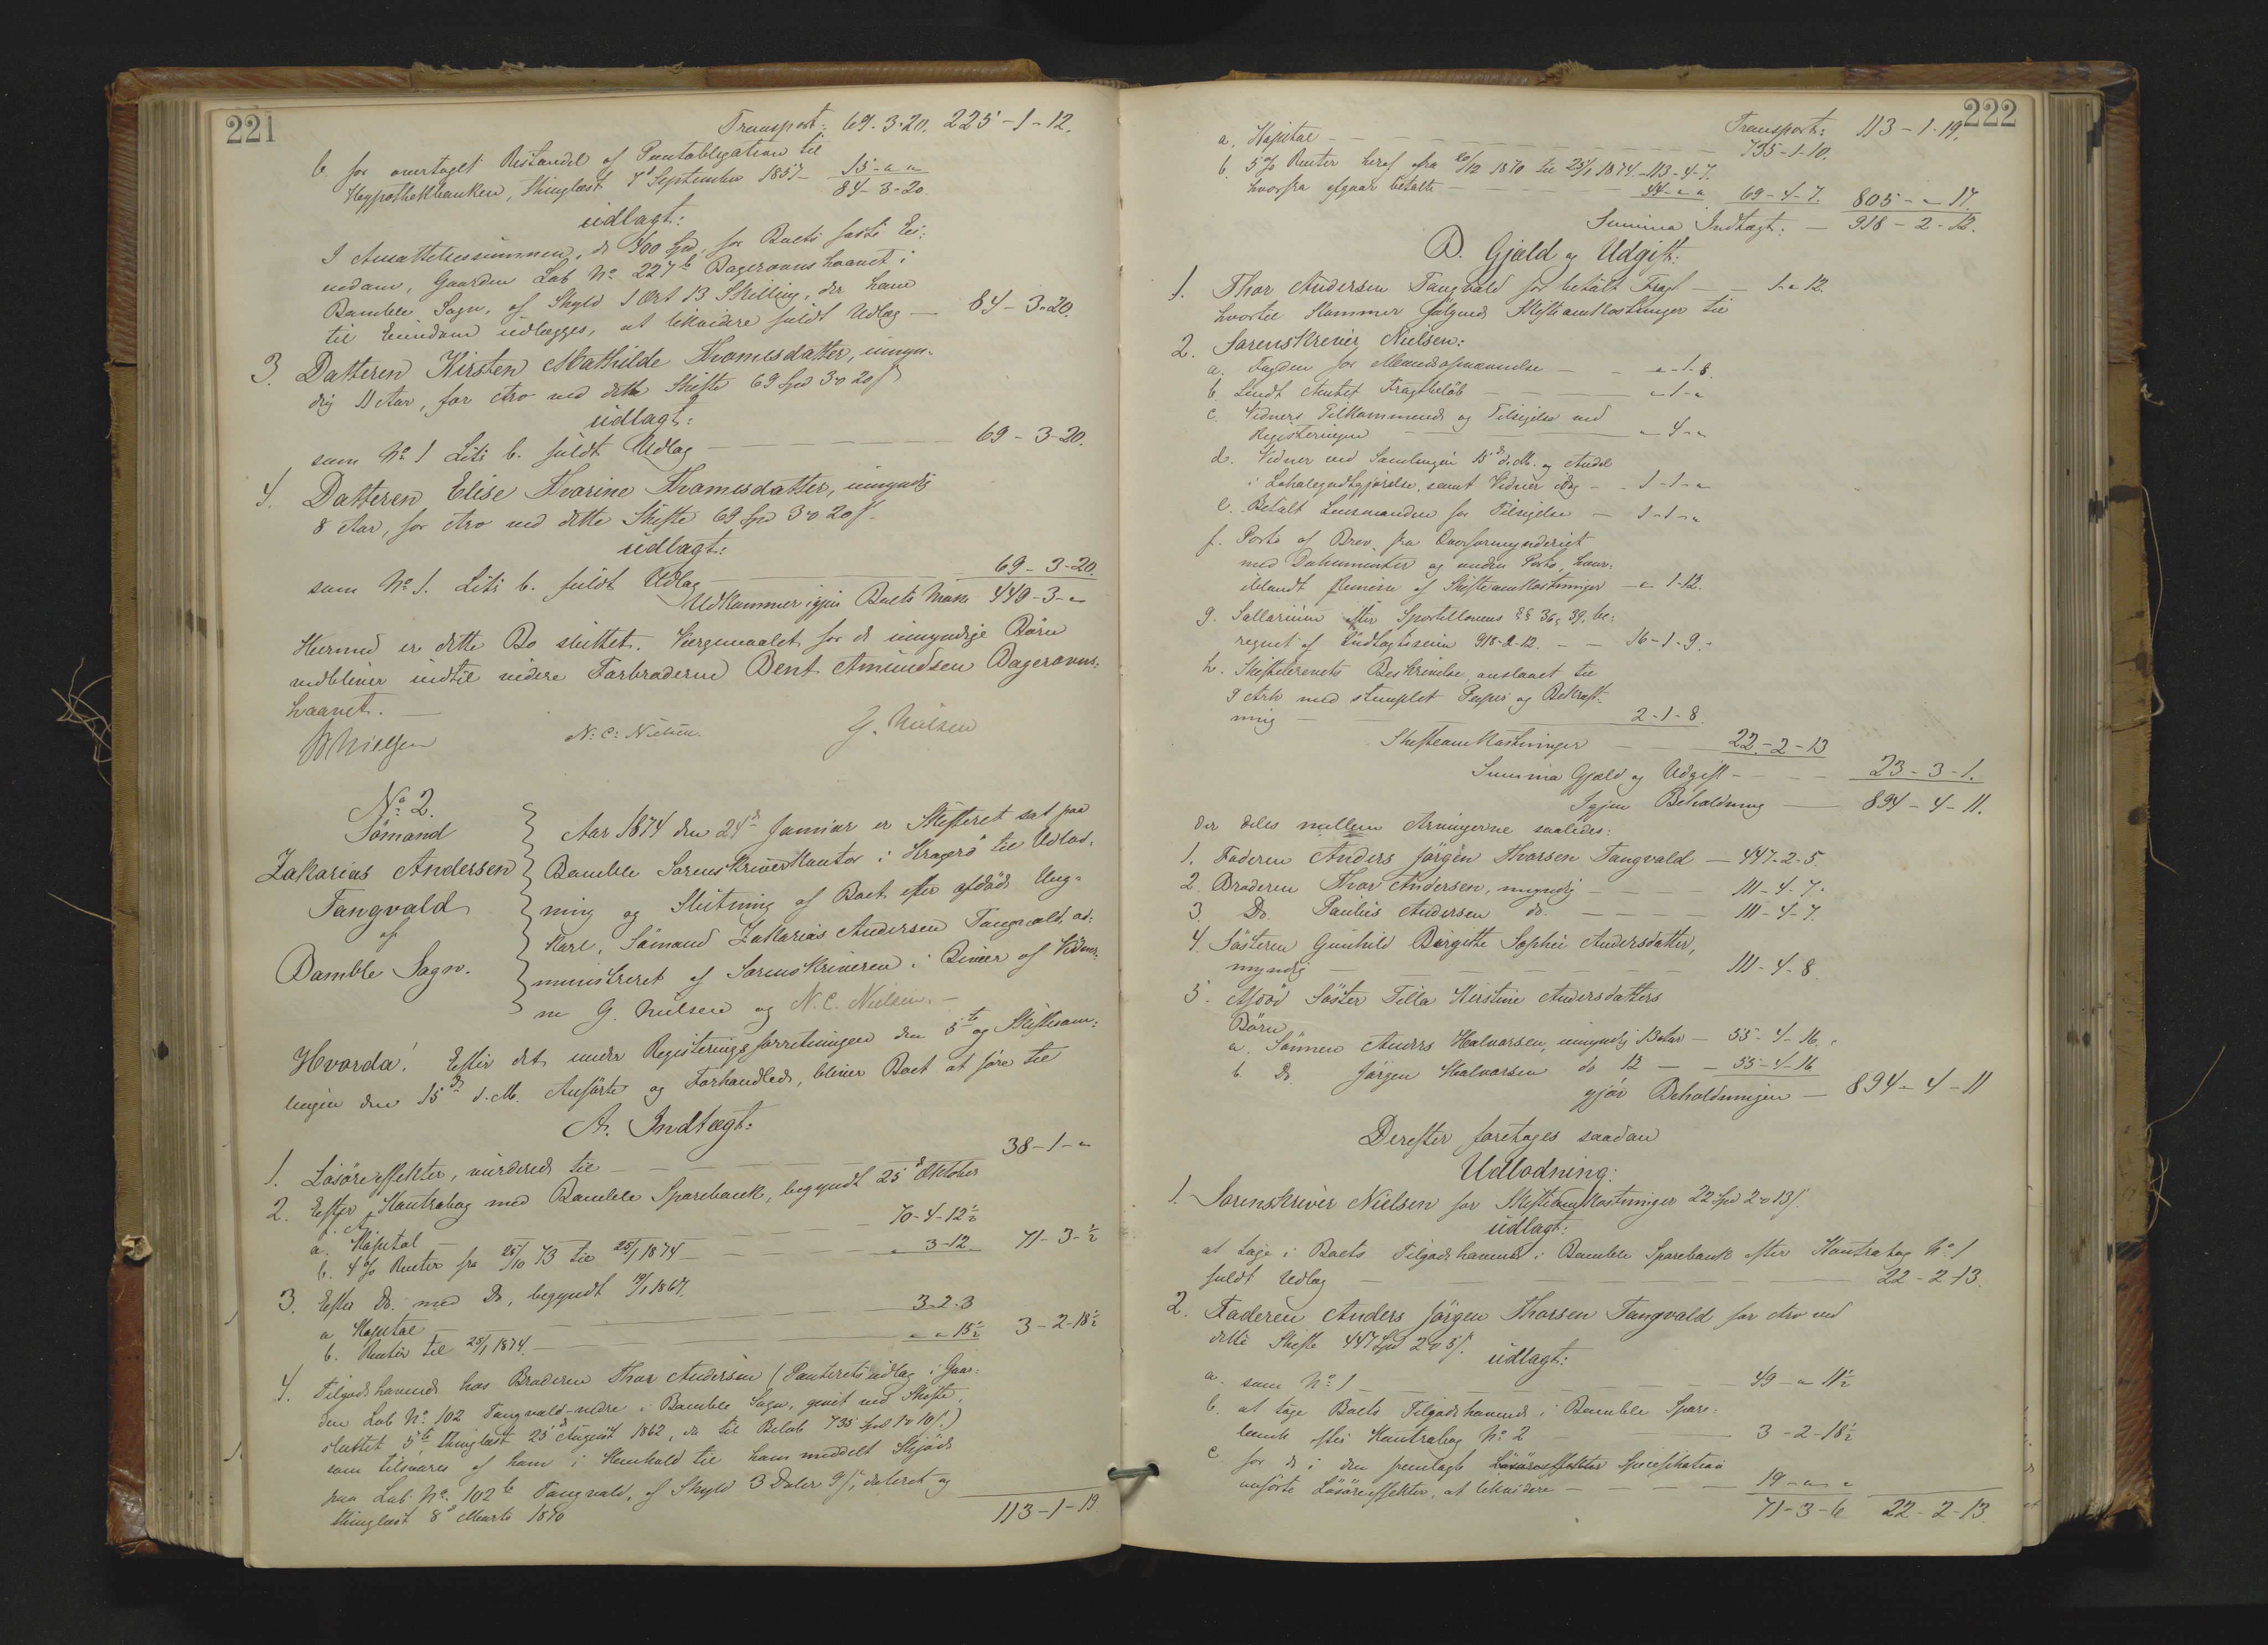 221
Transport: 69-3-20. 225-1-12.
b. for overtaget Restandel af Pantobligation til
Hypothekbanken, thinglæst 7de September 1857 - 15-"-"
84-3-20.
udlagt:
I Ansættelsessummen, de 400 Spd, for Boets faste Ei-
endom, Gaarden Lab No 227b Bagerovnshaavet i
Bamble Sogn, af Skyld 1 Ort 13 Skilling, der ham
til Eiendom udlægges, at likvidere fuldt Udlæg - 84-3-20.
3. Datteren Kirsten Mathilde Thomesdatter, umyn-
dig 11 Aar, for Arv ved dette Skifte 69 Spd 3 o 20 s
udlagt:
som No 1 Litr b. fuldt Udlæg - 69-3-20.
4. Datteren Elise Thorine Thomesdatter, umyndig
8 Aar, for Arv ved dette Skifte 69 Spd 3 o 20 s.
udlagt:
som No 1. Litr b. fuldt Udlæg - 69-3-20.
Udkommer igjen Boets Masse 449-3-"
Hermed er dette Bo sluttet. Værgemaalet for de umyndige Børn
vedbliver indtil videre Farbroderen Bent Amundsen Bagerovns-
haavet. -
Nielsen N. C. Nielsen. G. Nielsen
No 2.
Sömand
Zakarias Andersen
Tangvald
af
Bamble Sogn.
Aar 1874 den 24de Januar er Skifteret sat paa
Bamble Sorenskriverkontor i Kragerö til Udlod-
ning og Slutning af Boet efter afdöde Ung-
karl, Sömand Zakarias Andersen Tangvald, ad-
ministreret af Sorenskriveren i Bivær af Vidner-
ne G. Nielsen og N. C. Nielsen. -
Hvorda! Efter det under Registeringsforretningen den 5te og Skiftesam-
lingen den 15de d. M. Anførte og Forhandlede, bliver Boet at före til
A. Indtægt:
1. Lösöreeffekter, vurderede til - 38-1-"
2. Efter Kontrabog med Bamble Sparebank, begyndt 25de Oktober
f. A.
a. Kapital - 70-4-12½
b. 4% Renter fra 25/10 73 til 25/1 1874 - " 3-12 71-3-½
3. Efter Do. med Do, begyndt 19/1 1867.
a. Kapital - 3-2-3
b. Renter til 25/1 1874. - "-"-15½ 3-2-18½
4. Tilgodehavende hos Broderen Thor Andersen (Panteretsudlæg i Gaar-
den Lab No. 102 Tangvald-nedre i Bamble Sogn, givet ved Skifte,
sluttet 5te, thinglæst 25de August 1862, der til Beløb 735 Spd 1 o 10 s.)
som tilsvares af ham i Henhold til ham meddelt Skjøde
paa Lab. No. 102b Tangvald, af Skyld 3 Daler 9 s, dateret og
thinglæst 8de Marts 1870
113-1-19
222
Transport: 113-1-19.
a. Kapital - 735-1-10.
b. 5% Renter heraf fra 20/12 1870 til 25/1 1874 - 113-4-7.
hvorfra afgaar betalte - 44-"-" 69-4-7. 805-"-17.
Summa Indtægt: - 918-2-12.
B. Gjæld og Udgift:
1. Thor Andersen Tangvald for betalt Fragt - 1-"-12.
hvortil kommer følgende Skifteomkostninger til
2. Sorenskriver Nielsen:
a. Fogden for Mændsopnævnelse - "-1-8.
b. Sendt Amtet Fragtbeløb - "-1-"
c. Vidners Tilkommende og Tilsigelse ved
Registeringen - "-4-"
d. Vidner ved Samlingen 15de d. M. og Andel
i Lokalegodtgjørelse, samt Vidner idag - 1-1-"
e. Betalt Lensmanden for Tilsigelse - 1-1-"
f. Porto af Brev fra Overformynderiet
med Dokumenter og anden Porto, hvor-
iblandt Remisse af Skifteomkostninger - " 1-12.
g. Sallarium efter Sportellovens §§ 36, 39, be-
regnet af Indtægtssum 918-2-12. - 16-1-9.
h. Skiftebrevets Beskrivelse anslaaet til
9 Ark med stemplet Papir og Bekræft-
ning - 2-1-8.
Skifteomkostninger - 22-2-13
Summa Gjæld og Udgift - 23-3-1.
Igjen Beholdning - 894-4-11.
der deles mellem Arvingerne saaledes:
1. Faderen Anders Jörgen Thorsen Tangvald - 447-2-5.
2. Broderen Thor Andersen, myndig - 111-4-7.
3. Do. Paulus Andersen do. - 111-4-7.
4. Sösteren Gunhild Birgitte Sophie Andersdatter,
myndig - 111-4-8.
5. Afdöd Söster Tilla Kirstine Andersdatters
Börn
a. Sönnen Anders Halvorsen, umyndig 13 Aar - 55-4-16.
b. Do. Jörgen Halvorsen do 12 - 55-4-16
gjör Beholdningen - 894-4-11
Derefter foretages saadan
Udlodning:
1. Sorenskriver Nielsen for Skifteomkostninger 22 Spd 2 o 13 s.
udlagt:
at tage i Boets Tilgodehavende i Bamble Sparebank efter Kontrabog No. 1
fuldt Udlæg - 22-2-13.
2. Faderen Anders Jörgen Thorsen Tangvald for Arv ved
dette Skifte 447 Spd 2 o 5 s.
udlagt:
a. som No 1 - 49-"-11½
b. at tage Boets Tilgodehavende i Bamble Spare-
bank efter Kontrabog No. 2 - 3-2-18½
c. for de i den fremlagte Lösöreeffekter Specifikation
anførte Lösöreeffekter, at likvidere - 19-"-"
71-3-6 22-2-13.